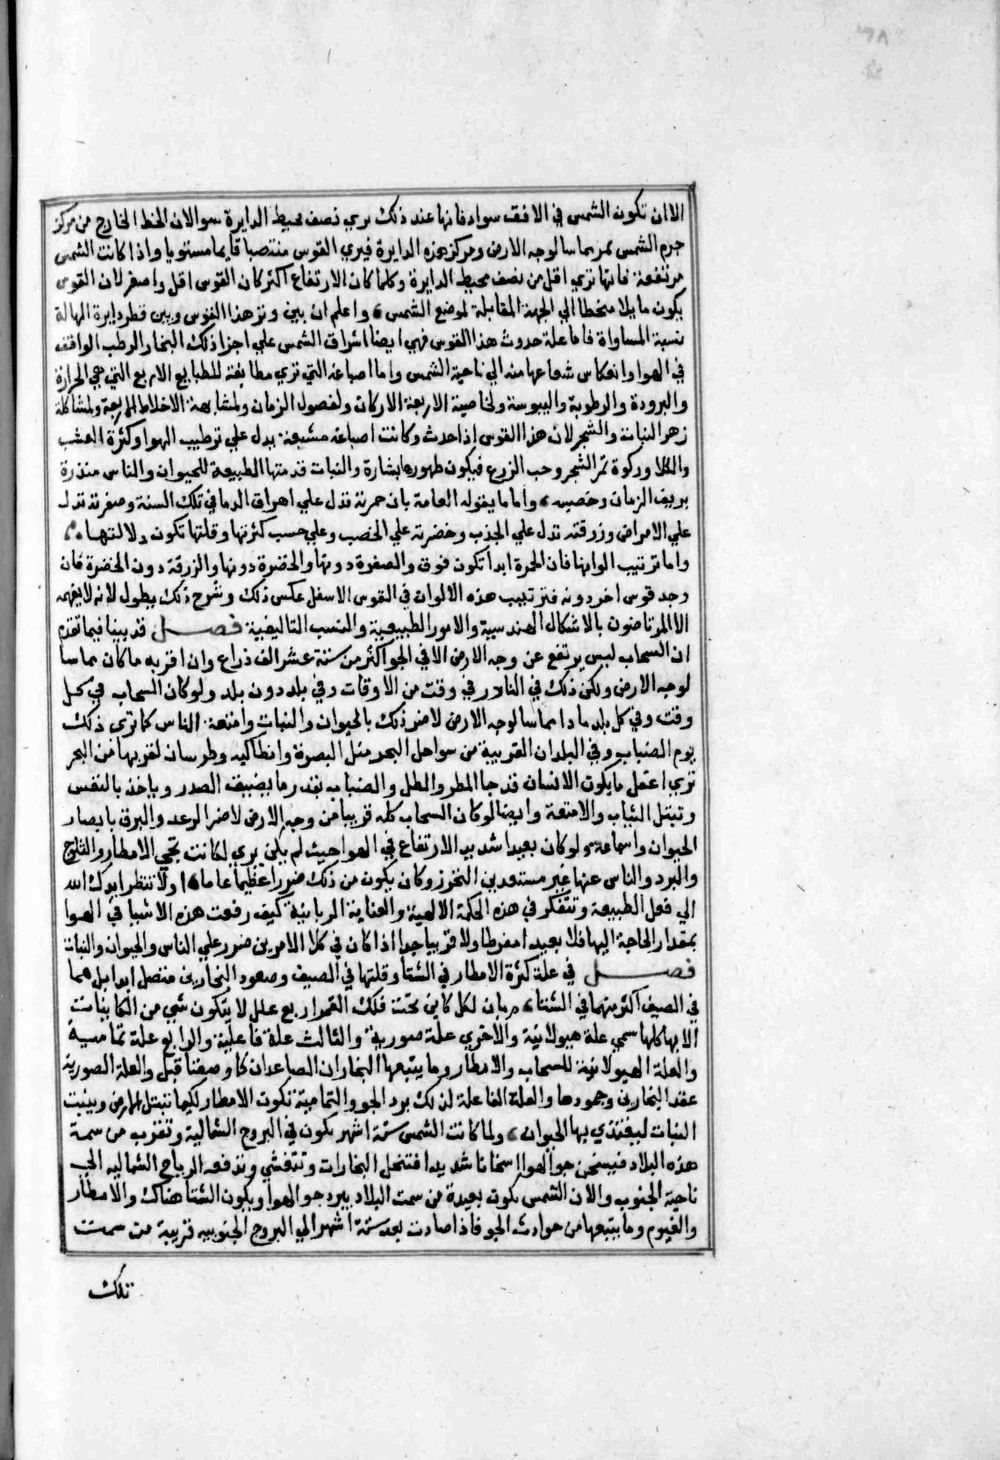 الا ان تكون الشمس في الافق سواء فانها عند ذلك تري نصف محيط الدايرة سوا لان الخط الخارج من مركز
جرم الشمس يمر مماسا لوجه الارض ومركز هذه الدايرة فيري القوس منتصبا قايما مستويا واذا كانت الشمس
مرتفعة فانها تري اقل من نصف محيط الدايرة وكلما كان الارتفاع اكثر كان القوس اقل واصغر لان القوس
يكون مايلا منحطا الي الجهة المقابلة لموضع الشمس واعلم ان بين وتر هذا القوس وبين قطر دايرة الهالة
نسبة المساواة فاما علة حدوث هذا القوس فهي ايضا اشراق الشمس علي اجزا ذلك البخار الرطب الواقف
في الهوا وانعكاس شعاعها منه الي ناحية الشمس واما اصباغه التي تري مطابقة للطبايع الاربع التي هي الحرارة
والبرودة والرطوبة واليبوسة ولخاصية الاربعة الاركان ولفصول الزمان ولمشابهة الاخلاط الاربعة ولمشاكلة
زهر النبات والشجر لان هذا القوس اذا حدث وكانت اصباغه مشبعة يدل علي ترطيب الهوا وكثرة العشب
والكلا وزكوة ثمر الشجر وحب الزرع فيكون ظهورها بشارة والنبات قدمتها الطبيعة للحيوان والناس منذرة
بريف الزمان وخصبه واما ما يقوله العامة بان حمرته تدل علي اهراق الدما في تلك السنة وصفرته تدل
علي الامراض وزرقته تدل علي الجذب وخضرته علي الخصب وعلي حسب كثرتها وقلتها تكون دلالتها
واما ترتيب الوانها فان الحمرة ابدا تكون فوق والصفرة دونها والخضرة دونها والزرقة دون الخضرة فان
وجد قوس اخر دونه فترتيب هذه الالوان في القوس الاسفل عكس ذلك وشرح ذلك يطول لانه لا يفهمه
الا المرتاضون بالاشكال الهندسية والامور الطبيعية والنسب التاليفية فصل قد بينا فيما تقدم
ان السحاب ليس يرتفع عن وجه الارض الا في الجو اكثر من ستة عشر الف ذراع وان اقربه ما كان مماسا
لوجه الارض ولكن ذلك في النادر في وقت من الاوقات وفي بلد دون بلد ولو كان السحاب في كل
وقت وفي كل بلد مادا مماسا لوجه الارض لاضر ذلك بالحيوان والنبات وامتعة الناس كما تري ذلك
يوم الضباب وفي البلدان القريبة من سواحل البحر مثل البصرة وانطاكيه وطبرسان لقربها من البحر
تري اغفل ما يكون الانسان قد جا المطر والطل والضباب بقدر ما يضيق الصدر وياخذ بالنفس
وتبتل الثياب والامتعة وايضا لو كان السحاب كله قريبا من وجه الارض لاضر الرعد والبرق بابصار
الحيوان واسماعه ولو كان بعيدا شديد الارتفاع في الهوا حيث لم يكن يري لكانت تجي الامطار والثلوج
والبرد والناس عنها غير مستعدين التحرز وكان يكون من ذلك ضررا عظيما عاما ولا تنظر ايدك الله
الي فعل الطبيعة وتتفكر في هذه الحكمة الالهية والعناية الربانية كيف رفعت هذه الاشيا في الهوا
بمقدار الحاجة اليها فلا بعيدا مفرطا ولا قريبا جدا اذا كان في كلا الامرين ضرر علي الناس والحيوان والنبات
فصل في علة كثرة الامطار في الشتا وقلتها في الصيف وصعود البخارين متصل ابدا بل هما
في الصيف اكثر منهما في الشتا بان لكل كاين تحت فلك القمر اربع علل لا يتكون شي من الكاينات
الا بها كلها سمي علة هيولانية والاخري علة صورية والثالث علة فاعلية والرابع علة تمامية
والعلة الهيولانية للسحاب والامطار وما يتبعها البخاران الصاعدان كما وصفنا قبل والعلة الصورية
عقد البخارين وجمودها والعلة الفاعلة لذلك برد الجو والتمامية تكون الامطار لكيما تبتل الارض وينبت
النبات ليغتذي بها الحيوان ولما كانت الشمس ستة اشهر تكون في البروج الشمالية وتقرب من سمة
هذه البلاد فيسخن جو الهوا اسخانا شديدا فتنحل البخارات وتتفشي وتدفعه الرياح الشماليه الي
ناحية الجنوب والان الشمس تكون بعيدة من سمت البلاد يبرد جو الهوا ويكون الشتا هناك والامطار
والغيوم وما يتبعها من حوادث الجو فاذا صارت بعد ستة اشهر الي البروج الجنوبيه قريبة من سمت
تلك